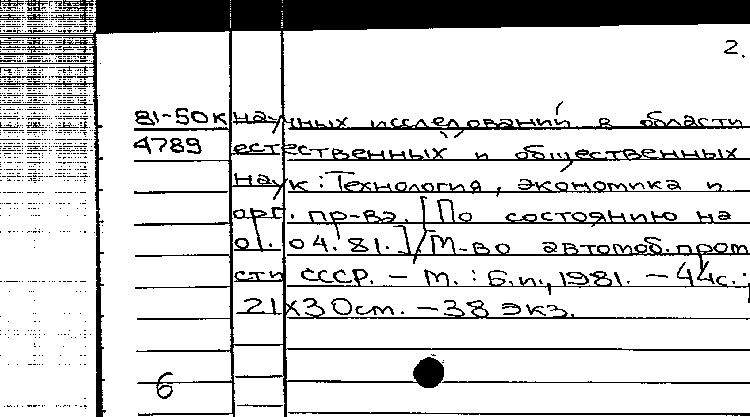 2.
81-50к научных исследований в области
4789 естественных и общественных
наук: Технология, экономика и
орг. пр-ва. [По состоянию на
01.04.81.]/М-во автомоб. пром
сти СССР. - М. : Б.и., 1981. - 44с.;
21х30см. - 38 экз.
6